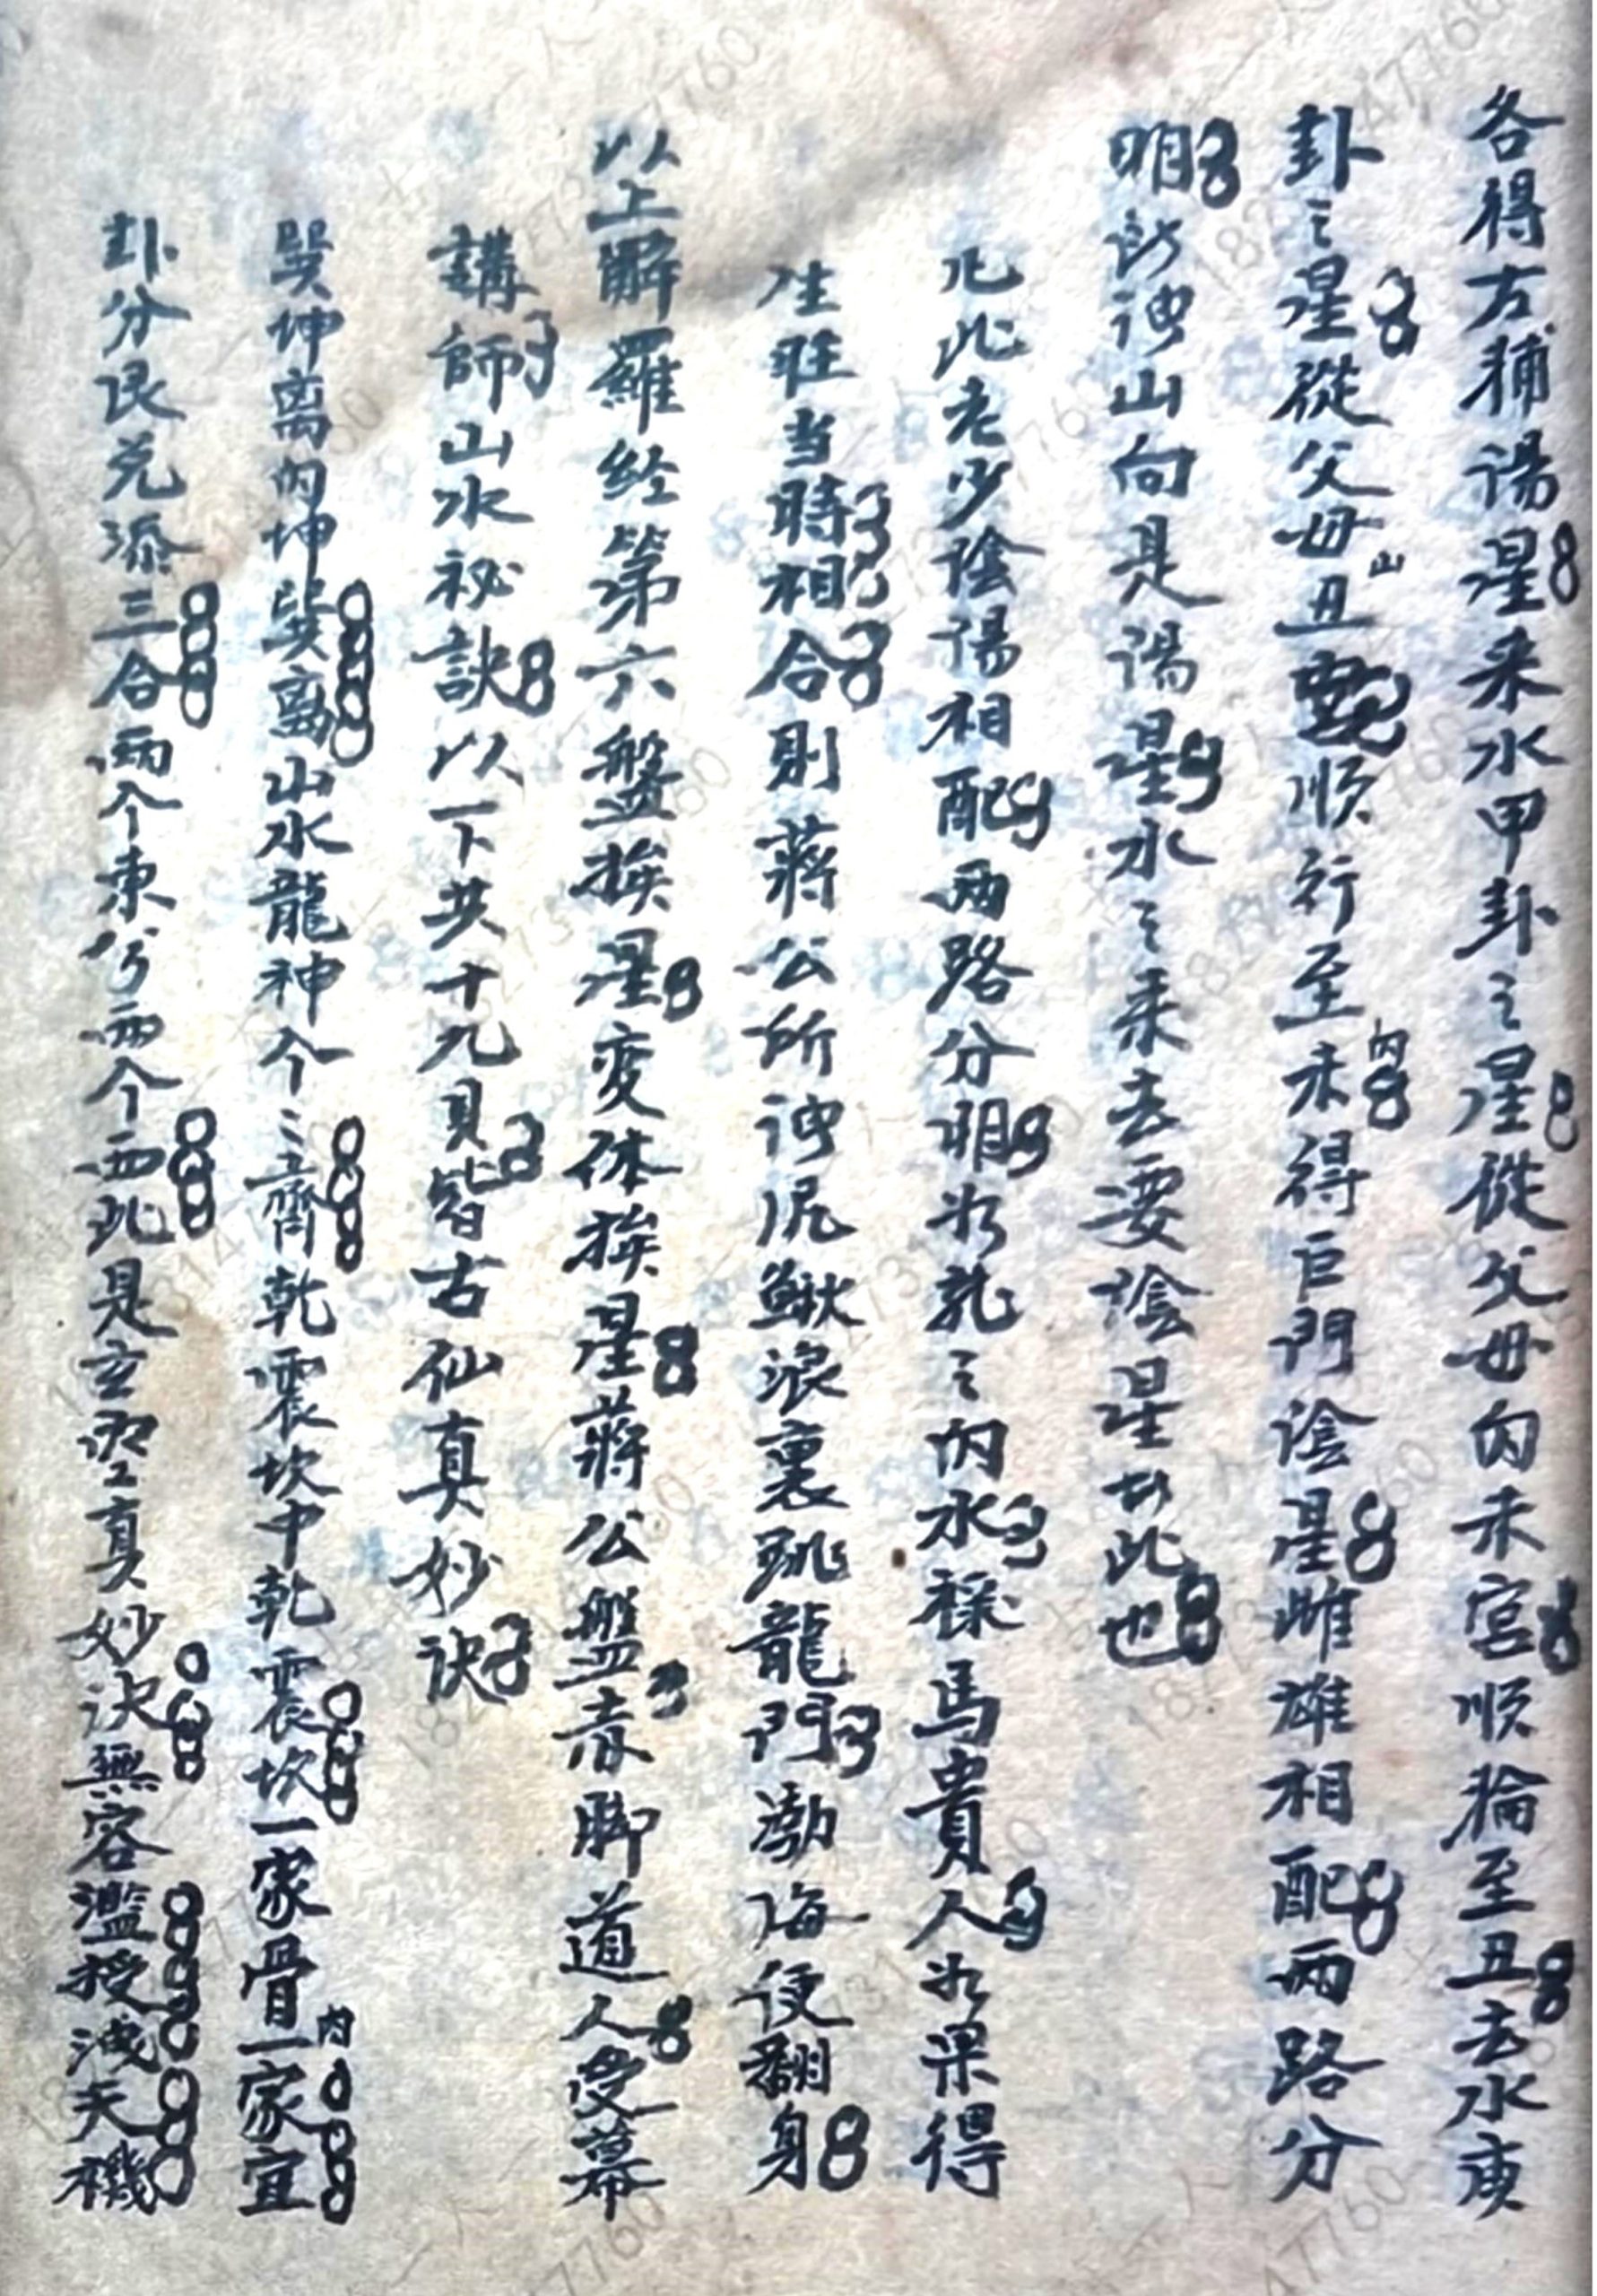 各得右辅阳星来水甲卦之星從父母内未宫順輪至丑去水庚
卦之星從父母丑山順行至未内得巨門陰星雌雄相配两路分
明所谓山向是阳星水之来去要陰星者此也
凡此老少陰阳相配两路分明於乳之内水禄馬貴人於果得
生旺当時相合則蒋公所谓尻鰍浪裏跳龍門渤海便翻身
以上解羅经第六盤挨星变体挨星蒋公盤赤脚道人受幕
講師山水祕訣以下共十九頁皆古仙真妙诀
巽坤离内坤巽离山水龍神个三齊乾震坎中乾震坎一家骨内一家宜
卦分艮兑添三合两个東兮两个西此是玄空真妙诀無容濫授洩天機